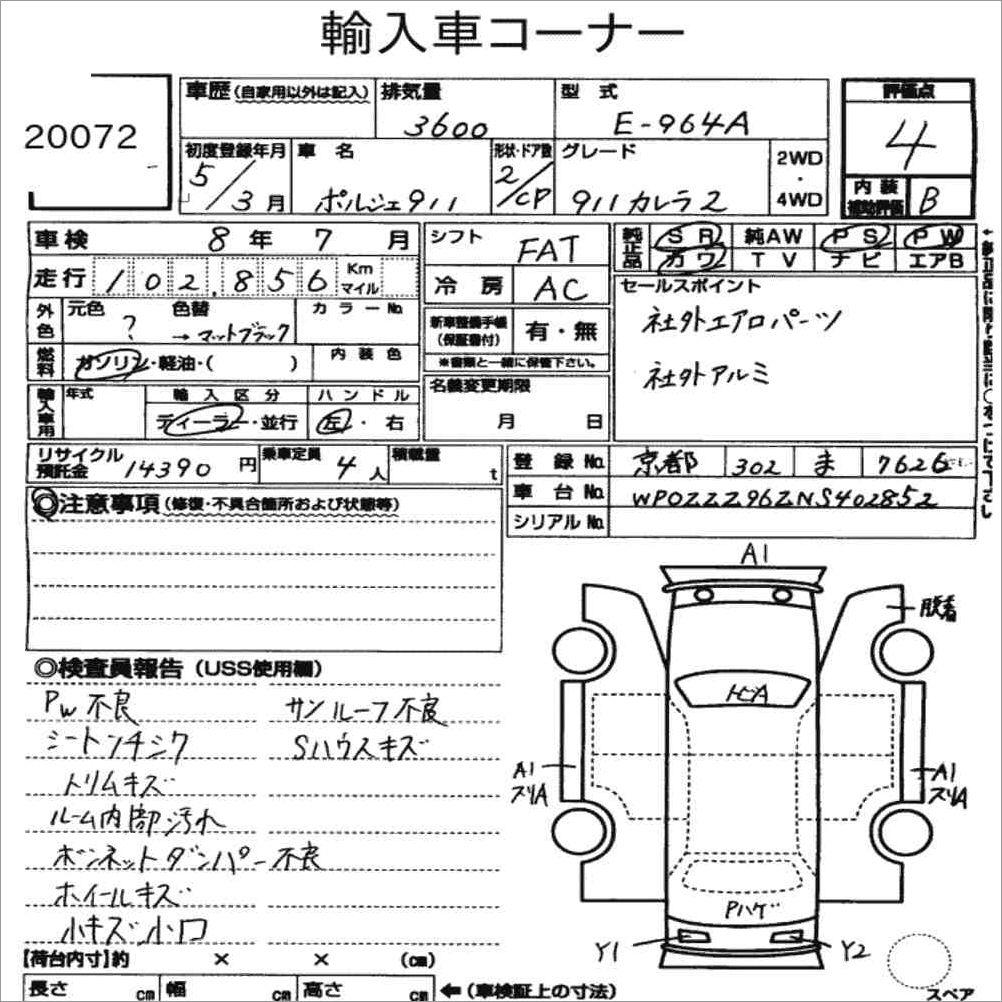 輸入車コーナー
20072
車歴 (自家用以外は記入) 排気量 型式 評価点
3600 E-964A 4
初度登録年月 車名 形状・ドア数 グレード 2WD・4WD 内装補助評価 B
5/3月 ポルシェ911 2/CP 911カレラ2
車検 8年 7月 シフト FAT 純正品 SR 純AW PS PW
走行 102,856 Km マイル カワ TV ナビ エアB
冷房 AC セールスポイント
外色 元色 ? 色替 →マットブラック カラーNo. 社外エアロパーツ
新車整備手帳 (保証書付) 有・無
※書類と一緒に保管下さい。
燃料 ガソリン・軽油・( ) 内装色 社外アルミ
名義変更期限
月 日
輸入車用 年式 輸入区分 ハンドル
ディーラー・並行 左・右
リサイクル預託金 14390円 乗車定員 4人 積載量 t
登録No. 京都 302 ま 7626
車台No. WP0ZZZ96ZNS402852
シリアルNo.
◎注意事項 (修復・不具合箇所および状態等)
◎検査員報告 (USS使用欄)
PW不良 サンルーフ不良
シートンチシク Sハウスキズ
トリムキズ
ルーム内部汚れ
ボンネットダンパー不良
ホイールキズ
小キズ小凹
A1
脱着
トビA
A1
スリA
A1
スリA
Pハゲ
Y1
Y2
スペア
【荷台内寸】約 × × (cm)
長さ cm 幅 cm 高さ cm ←(車検証上の寸法)